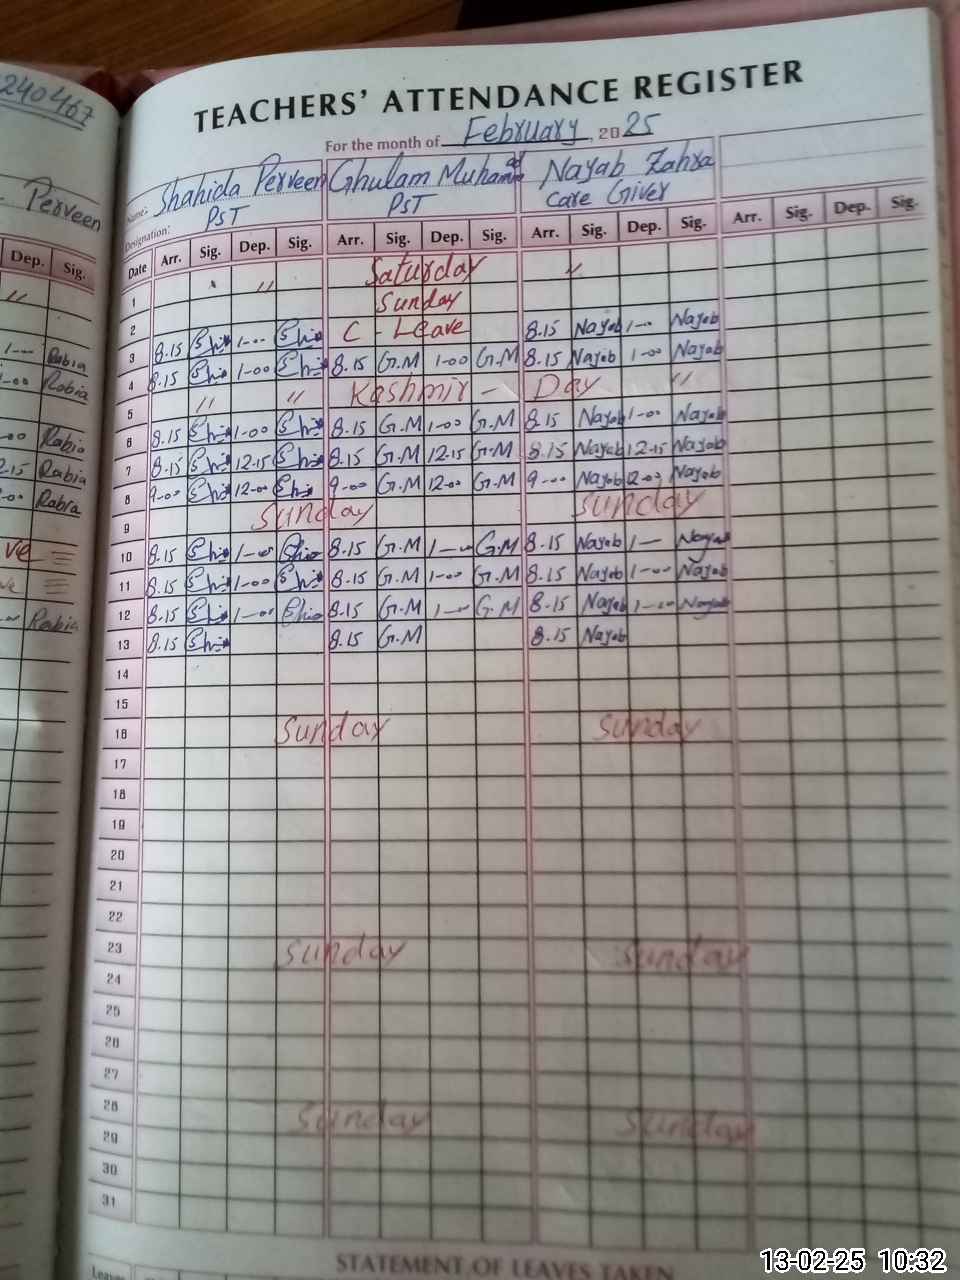 240467
Perveen
Dep. Sig.
"
1-- Rabia
Rabia
Rabia
Rabia
Rabia
Rabia
TEACHERS' ATTENDANCE REGISTER
For the month of February, 2025
Name: Shahida Perveen Ghulam Muhammad Nayab Zahra
Designation: PST PST Care Giver
Date Arr. Sig. Dep. Sig. Arr. Sig. Dep. Sig. Arr. Sig. Dep. Sig. Arr. Sig. Dep. Sig.
1 " Saturday "
2 Sunday
3 8.15 1-00 C - Leave 8.15 Nayab 1-- Nayab
4 8.15 1-00 8.15 G.M 1-00 G.M 8.15 Nayab 1-00 Nayab
5 " " Kashmir - Day "
6 8.15 1-00 8.15 G.M 1-00 G.M 8.15 Nayab 1-00 Nayab
7 8.15 12.15 8.15 G.M 12.15 G.M 8.15 Nayab 12.15 Nayab
8 9-00 12-00 9-00 G.M 12-00 G.M 9-- Nayab 12-00 Nayab
9 Sunday Sunday
10 8.15 1-00 8.15 G.M 1-00 G.M 8.15 Nayab 1- Nayab
11 8.15 1-00 8.15 G.M 1-00 G.M 8.15 Nayab 1-00 Nayab
12 8.15 1-00 8.15 G.M 1-00 G.M 8.15 Nayab 1-00 Nayab
13 8.15 8.15 G.M 8.15 Nayab
14
15
16 Sunday Sunday
17
18
19
20
21
22
23 Sunday Sunday
24
25
26
27
28 Sunday Sunday
29
30
31
STATEMENT OF LEAVES TAKEN
Leaves
13-02-25 10:32